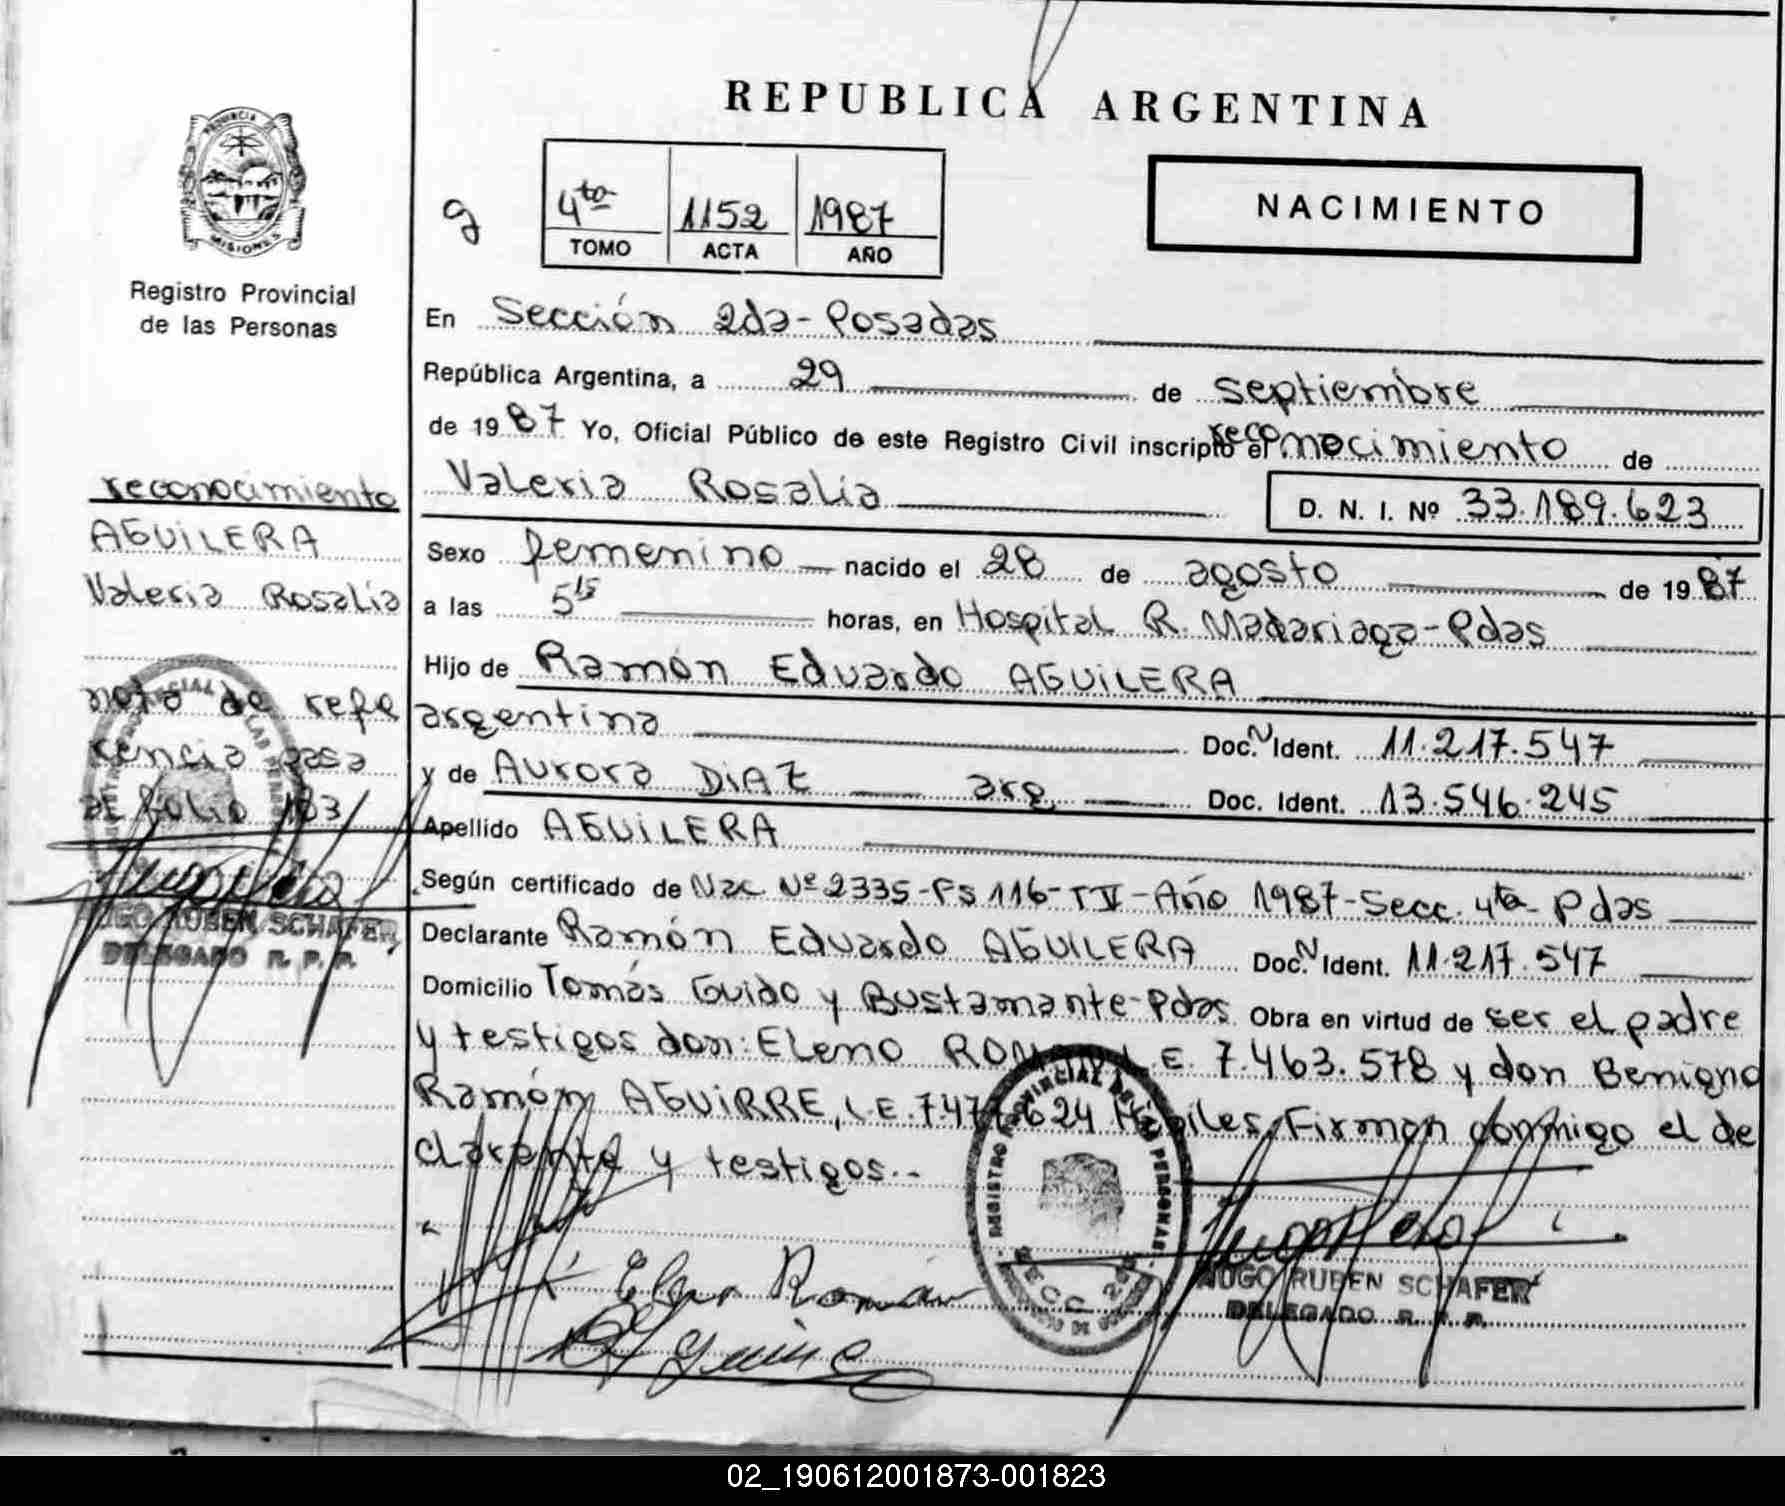 REPUBLICA ARGENTINA
PROVINCIA DE
MISIONES
Registro Provincial
de las Personas
g
4ta 1152 1987
TOMO ACTA AÑO
NACIMIENTO
En Sección 2da-Posadas
República Argentina, a 29 de septiembre
de 1987 Yo, Oficial Público de este Registro Civil inscripto el reconocimiento de
Valeria Rosalia D. N. I. Nº 33.189.623
Sexo femenino nacido el 28 de agosto de 1987
a las 5 15 horas, en Hospital R. Madariaga-Pdas
Hijo de Ramón Eduardo AGUILERA
argentina Doc. N Ident. 11.217.547
y de Aurora DIAZ arg. Doc. Ident. 13.546.245
Apellido AGUILERA
Según certificado de Nac Nº 2335-Fs 116-T IV-Año 1987-Secc. 4ta- Pdas
Declarante Ramón Eduardo AGUILERA Doc. N Ident. 11.217.547
Domicilio Tomás Guido y Bustamante-Pdas Obra en virtud de ser el padre
y testigos don: Eleno ROMAN L.E. 7.463.578 y don Benigno
Ramón AGUIRRE, L.E. 7.477.624 Hábiles, Firman conmigo el de
clarante y testigos.-
reconocimiento
AGUILERA
Valeria Rosalia
nota de refe
rencia pasa
al folio 183
HUGO RUBEN SCHAFER
DELEGADO R. P. P.
REGISTRO PROVINCIAL DE LAS PERSONAS
SECC 2da
Eleno Román
HUGO RUBEN SCHAFER
DELEGADO R. P. P.
02_190612001873-001823